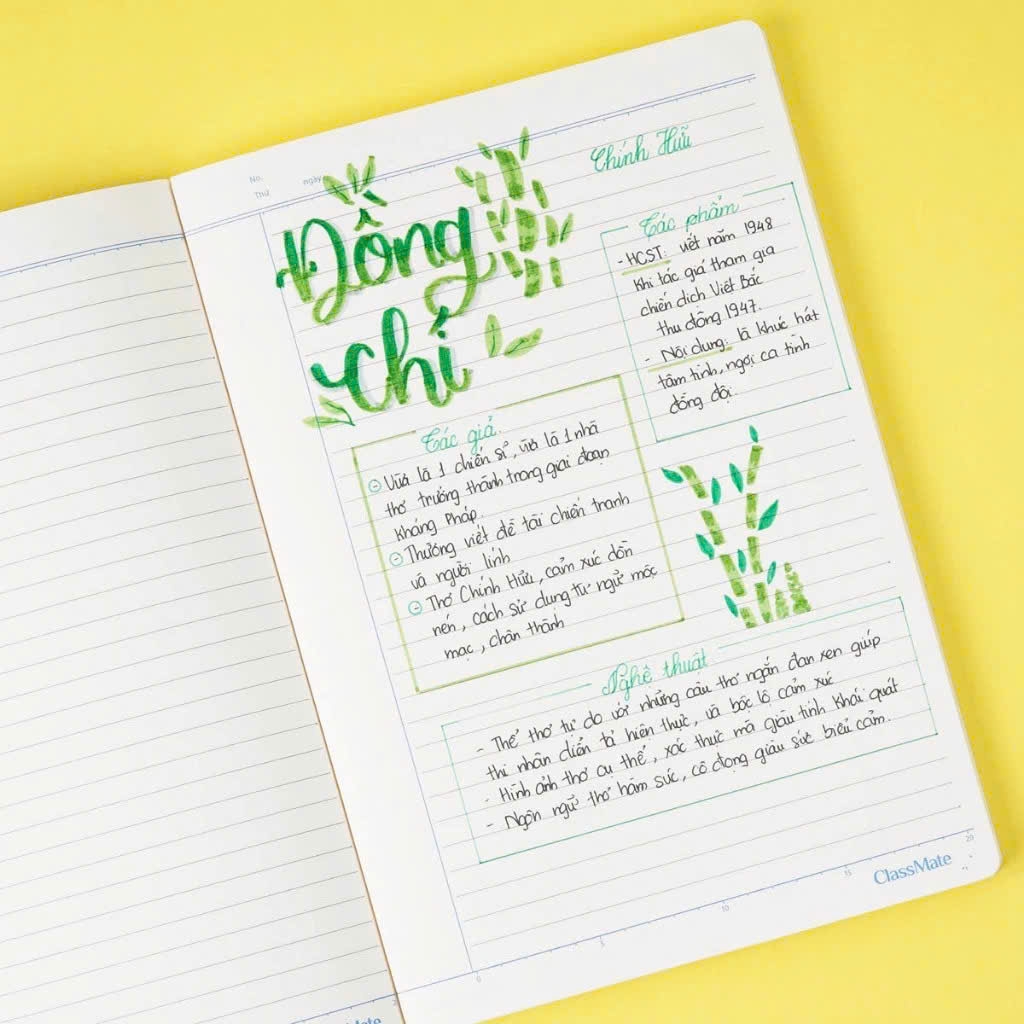 No.
Thứ
ngày
Đồng
chí
Chính Hữu
Tác giả
Vừa là 1 chiến sĩ, vừa là 1 nhà
thơ trưởng thành trong giai đoạn
kháng Pháp.
Thường viết đề tài chiến tranh
và người lính
Thơ Chính Hữu, cảm xúc dồn
nén, cách sử dụng từ ngữ mộc
mạc, chân thành
Tác phẩm
- HCST: viết năm 1948
khi tác giả tham gia
chiến dịch Việt Bắc
thu đông 1947.
- Nội dung: là khúc hát
tâm tình, ngợi ca tình
đồng đội.
Nghệ thuật
- Thể thơ tự do với những câu thơ ngắn đan xen giúp
thi nhân diễn tả hiện thực, và bộc lộ cảm xúc
- Hình ảnh thơ cụ thể, xác thực mà giàu tính khái quát
- Ngôn ngữ thơ hàm súc, cô đọng giàu sức biểu cảm.
0 5 10 15 20
ClassMate